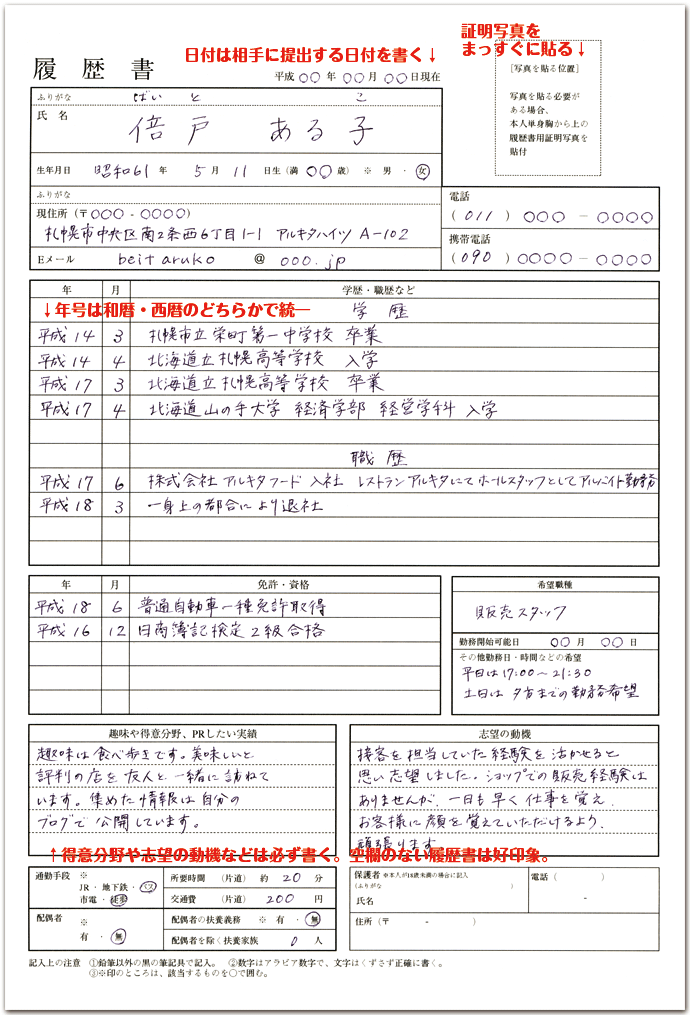 日付は相手に提出する日付を書く↓
証明写真を
まっすぐに貼る↓
履歴書
平成 〇〇 年 〇〇 月 〇〇 日現在
[写真を貼る位置]
写真を貼る必要が
ある場合、
本人単身胸から上の
履歴書用証明写真を
貼付
ふりがな ばい と こ
氏名 倍戸 ある子
生年月日 昭和61年 5月 11日生(満 〇〇 歳) ※ 男・女
ふりがな
現住所(〒〇〇〇-〇〇〇〇)
札幌市中央区南2条西6丁目1-1 アルキタハイツ A-102
Eメール beitaruko @ 000.jp
電話
(011) 〇〇〇-〇〇〇〇
携帯電話
(090) 〇〇〇〇-〇〇〇〇
年 月 学歴・職歴など
↓年号は和暦・西暦のどちらかで統一
学歴
平成14 3 札幌市立栄町第一中学校 卒業
平成14 4 北海道立札幌高等学校 入学
平成17 3 北海道立札幌高等学校 卒業
平成17 4 北海道山の手大学 経済学部 経営学科 入学
職歴
平成17 6 株式会社アルキタフード入社 レストランアルキタにてホールスタッフとしてアルバイト勤務
平成18 3 一身上の都合により退社
年 月 免許・資格
平成18 6 普通自動車一種免許取得
平成16 12 日商簿記検定2級合格
希望職種
販売スタッフ
勤務開始可能日 〇〇月 〇〇日
その他勤務日・時間などの希望
平日は17:00〜21:30
土日は夕方までの勤務希望
趣味や得意分野、PRしたい実績
趣味は食べ歩きです。美味しいと
評判の店を友人と一緒に訪ねて
います。集めた情報は自分の
ブログで公開しています。
志望の動機
接客を担当していた経験を活かせると
思い志望しました。ショップでの販売経験は
ありませんが、一日も早く仕事を覚え、
お客様に顔を覚えていただけるよう、
頑張ります。
↑得意分野や志望の動機などは必ず書く。空欄のない履歴書は好印象。
通勤手段 ※
JR・地下鉄・バス
市電・徒歩
所要時間 (片道) 約 20 分
交通費 (片道) 200 円
配偶者 ※
有・無
配偶者の扶養義務 ※ 有・無
配偶者を除く扶養家族 0 人
保護者 ※本人が18歳未満の場合に記入
(ふりがな )
氏名
電話( )
-
住所(〒 - )
記入上の注意 ①鉛筆以外の黒の筆記具で記入。 ②数字はアラビア数字で、文字はくずさず正確に書く。
③※印のところは、該当するものを〇で囲む。